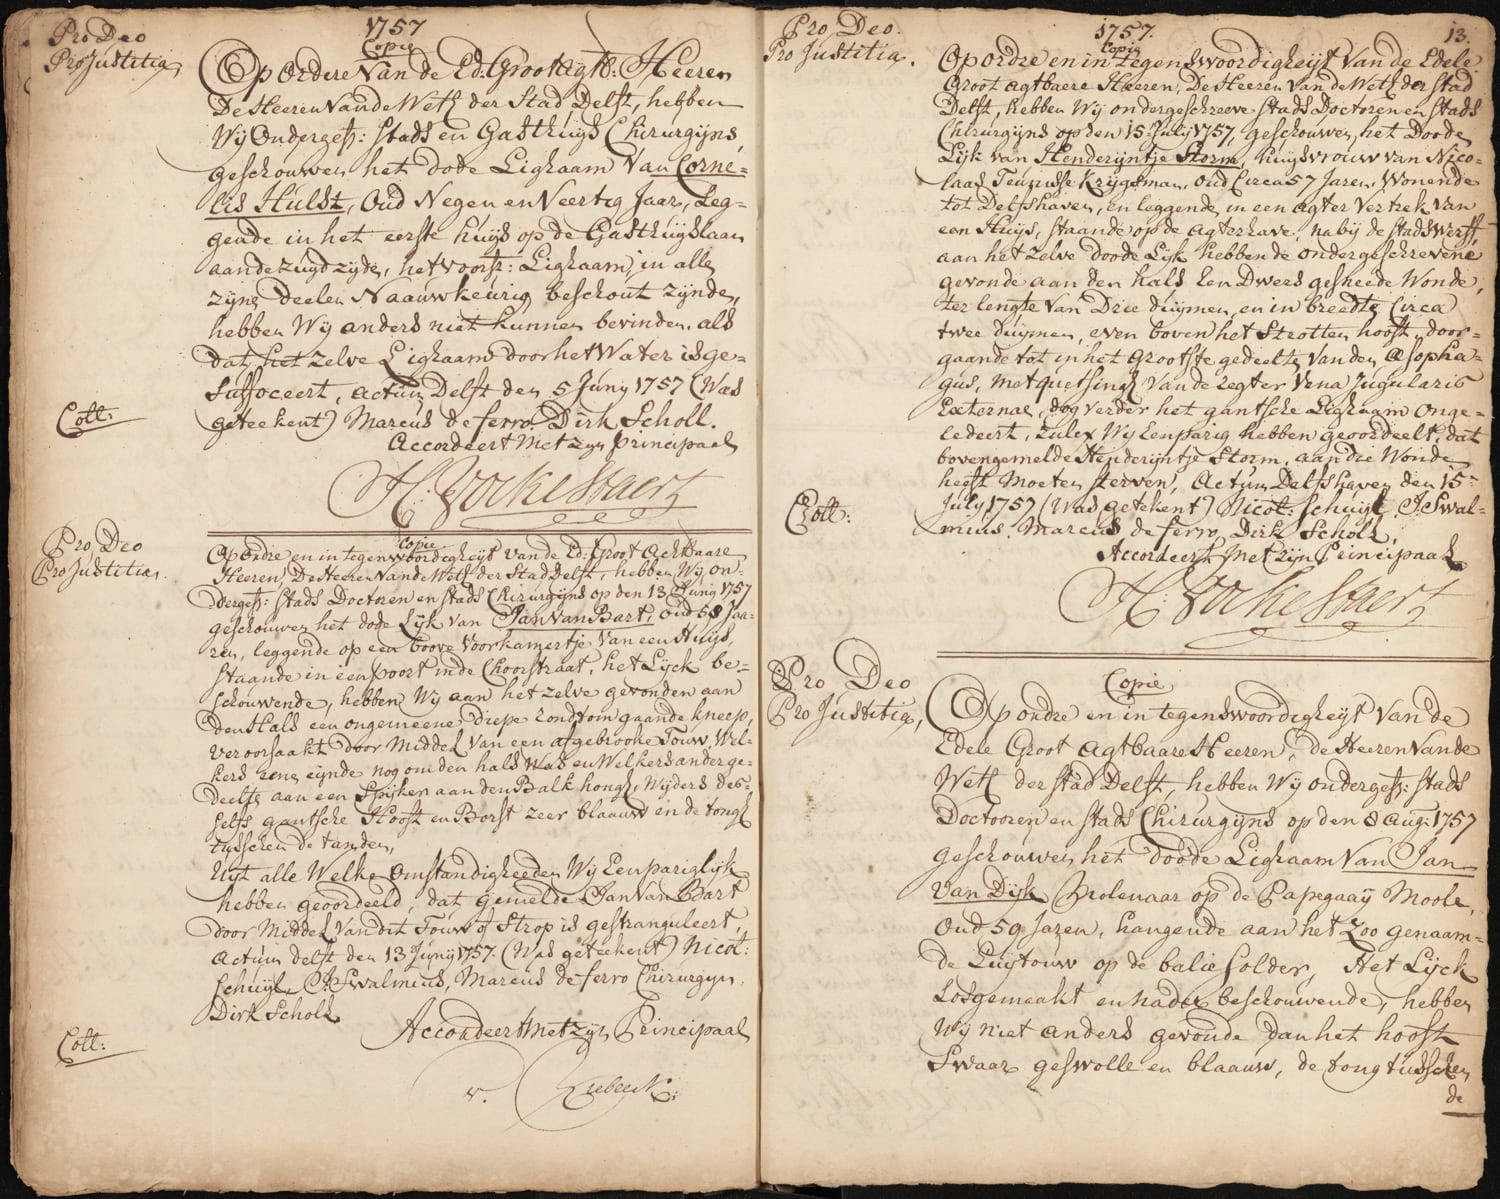 Pro Deo
Pro Justitia,
1757
Copie
Op Ordere van de Ed: Groot Agtb: Heeren
De Heeren van de Weth der Stad Delft, hebben
Wij Ondergesz: Stads en Gasthuijs Chirurgijns,
geschouwen het dode Lighaam van Corne=
lis Hulst, Oud Negen en Veertig Jaar, Leg=
gende in het eerste huijs op de Gasthuijslaan
aan de Zuijd zijde, het voorsz: Lighaam, in alle
zijne deelen Naauwkeurig beschout zijnde,
hebben Wij anders niet kunnen bevinden, als
dat het zelve Lighaam door het Water is ge=
suffoceert, actum Delft den 5 Junij 1757 (Was
geteekent) Marcus de ferro, Dirk Scholl.
Coll:
Accordeert met zijn principaal
H: Vockestaert
Pro Deo
Pro Justitia.
Copie
Op ordre en in tegenwoordigheijt van de Ed: Groot Achtbaare
Heeren, De Heeren van de Weth der Stad Delft, hebben Wij on=
dergesz: Stads Doctoren en Stads Chirurgijns op den 13 Junij 1757
geschouwen het dode Lijk van Jan van Bart, oud 58 Jaa=
ren, leggende op een boove voorkamertje van een Huijs,
staande in een poort in de Choorstraat, het Lijck be=
schouwende, hebben Wij aan het zelve gevonden aan
den Hals een ongemeene diepe rondtom gaande kneep,
veroorsaakt door middel van een afgebrooke Touw, Wel=
kers eene eijnde nog om den hals was en Welkers ander ge=
deelte aan een Spijker aan den Balk hongh, Wijders des=
selfs gantsche Hooft en Borst zeer blaauw en de tongh
tusschen de tanden,
Uijt alle Welke omstandigheeden Wij Eenpariglijk
hebben geoordeeld, dat gemelde Jan van Bart
door middel van dit Touw of Strop is gestranguleert,
actum delft den 13 Junij 1757. (Was geteekent) Nicol:
Schuijl, J. Swalmius, Marcus de ferro Chirurgijn,
Dirk Scholl
Coll:
Accordeert met zijn Principaal
Pro Deo.
Pro Justitia.
1757.
13.
Copie
Op ordre en in tegenswoordigheijt van de Edele
Groot agtbaere Heeren, De Heeren van de Weth der Stad
Delft, hebben Wij ondergeschreeve Stads Doctoren en Stads
Chirurgijns op den 15 July 1757, geschouwen, het Doode
Lijk van Henderijntje Storm, huijsvrouw van Nico=
laas Teunisse Krijgsman, oud Circa 57 Jaren, Wonende
tot Delfshaven, en leggende in een agter vertrek van
een Huijs, staande op de agterhave, nabij de stads Werff,
aan het zelve doode Lijk hebben de ondergeschrevene
gevonde aan den hals een Dwers gesneede Wonde,
ter lengte van Drie duijmen, en in breedte Circa
twee duijmen, even boven het Strotten hooft, door=
gaande tot in het grootste gedeelte van den asopha=
gus, met quetsingh van de regter vena Jugularis
Externae, dog verder het gantsche Lighaam onge=
ledeert, zulex Wij Eenparig hebben geoordeelt, dat
bovengemelde Henderijntje Storm, aan die Wonde
heeft moeten sterven, Actum Delfshaven den 15=
July 1757 (Was getekent) Nicol: Schuijl, J. Swal=
mius. Marcus de ferro, Dirk Scholl,
Coll:
Accordeert met zijn Principaal
H: Vockestaert
Pro Deo
Pro Justitia,
Copie
Op ordre en in tegenswoordigheijt van de
Edele Groot agtbaare Heeren, de Heeren van de
Weth der Stad Delft, hebben Wij ondergesz: Stads
Doctooren en Stads Chirurgijns op den 8 Aug: 1757
geschouwen het doode Lighaam van Jan
van Dijk Molenaar op de Papegaaij Moole,
Oud 59 Jaren, hangende aan het zoo genaam=
de Luijtouw op de balie solder, Het Lijck
Losgemaakt en nader beschouwende, hebben
Wij niet anders gevonde dan het hooft
Swaar geswolle en blaauw, de tong tusschen
de